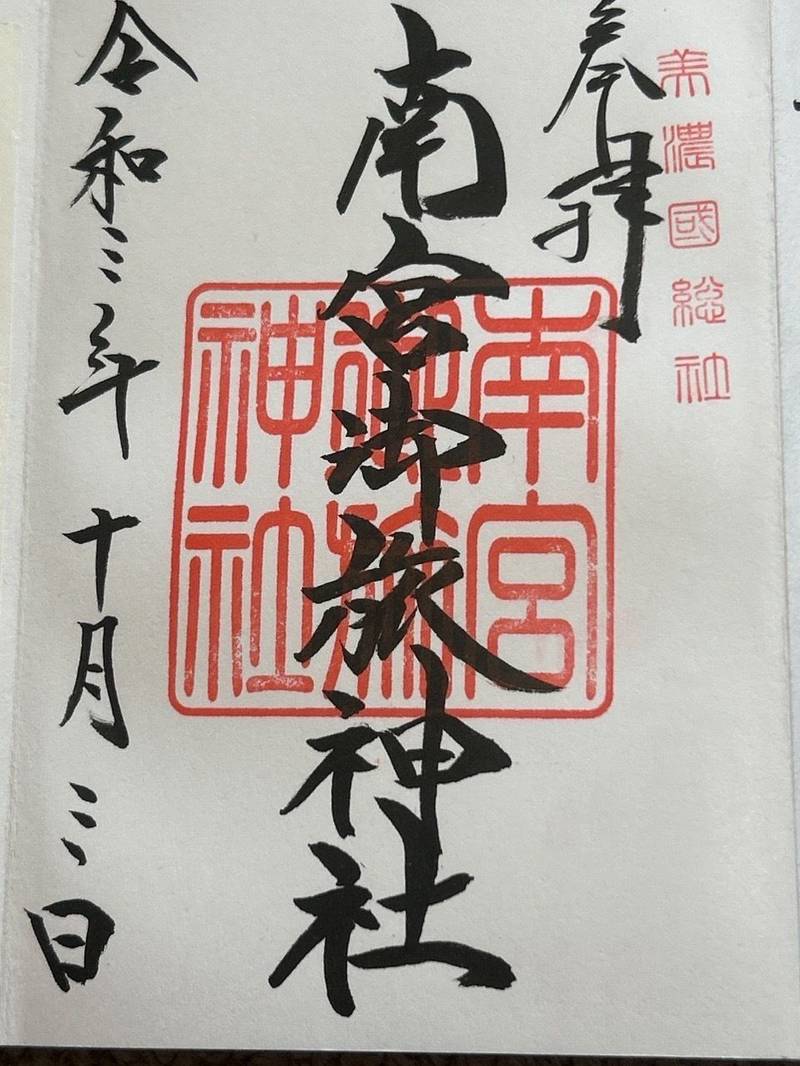 美濃國総社
奉拝
南宮御旅神社
南宮
御旅
神社
令和三年十月三日